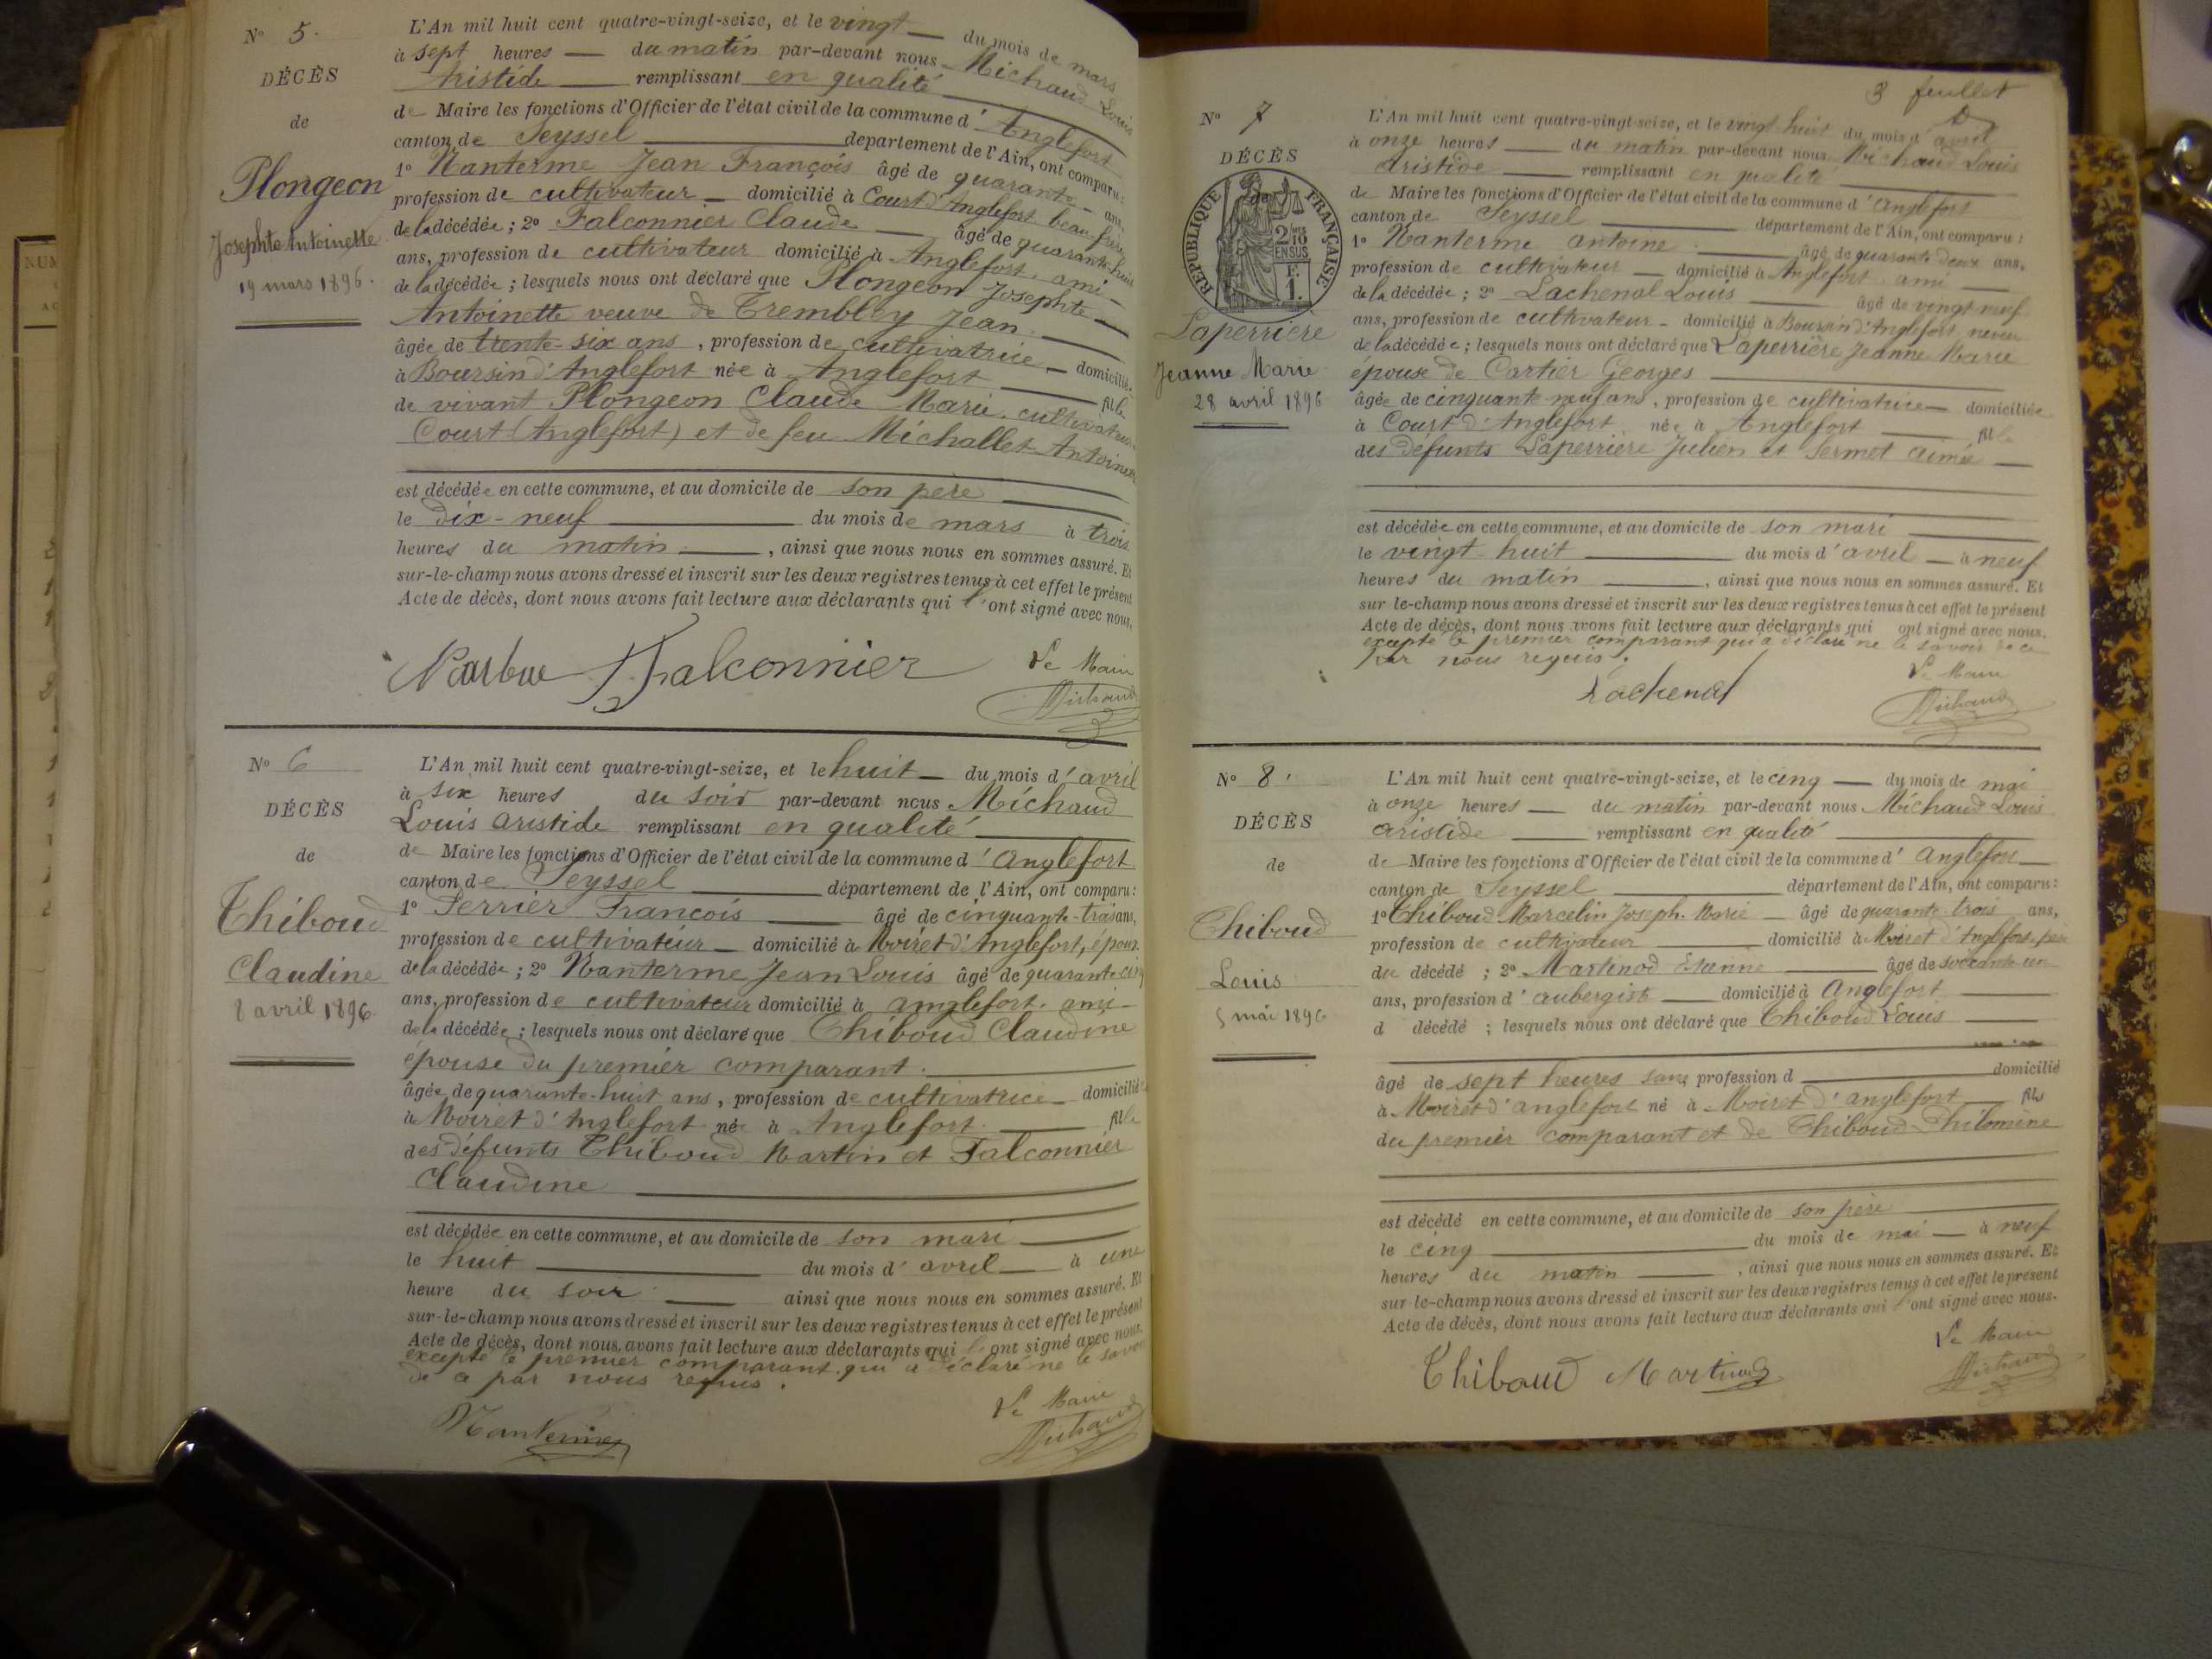 N° 5.
DÉCÈS
de
Plongeon
Josephte Antoinette
19 mars 1896.
L'An mil huit cent quatre-vingt-seize, et le vingt du mois de mars
à sept heures du matin par-devant nous Michaud Louis
Aristide remplissant en qualité
de Maire les fonctions d'Officier de l'état civil de la commune d'Anglefort
canton de Seyssel département de l'Ain, ont comparu:
1° Nanterme Jean François âgé de quarante ans,
profession de cultivateur domicilié à Court d'Anglefort beau-frère
de la décédée; 2° Falconnier Claude âgé de quarante-huit
ans, profession de cultivateur domicilié à Anglefort, ami
de la décédée; lesquels nous ont déclaré que Plongeon Josephte
Antoinette veuve de Trembley Jean
âgée de trente-six ans, profession de cultivatrice domiciliée
à Boursin d'Anglefort née à Anglefort fille
de vivant Plongeon Claude Marie, cultivateur
Court (Anglefort) et de feu Michallet Antoinette
est décédée en cette commune, et au domicile de son père
le dix-neuf du mois de mars à trois
heures du matin, ainsi que nous nous en sommes assuré. Et
sur-le-champ nous avons dressé et inscrit sur les deux registres tenus à cet effet le présent
Acte de décès, dont nous avons fait lecture aux déclarants qui l'ont signé avec nous.
Falconnier Le Maire
Michaud
N° 6
DÉCÈS
de
Thiboud
Claudine
8 avril 1896.
L'An mil huit cent quatre-vingt-seize, et le huit du mois d'avril
à six heures du soir par-devant nous Michaud
Louis Aristide remplissant en qualité
de Maire les fonctions d'Officier de l'état civil de la commune d'Anglefort
canton de Seyssel département de l'Ain, ont comparu:
1° Perrier François âgé de cinquante-trois ans,
profession de cultivateur domicilié à Moiret d'Anglefort, époux
de la décédée; 2° Nanterme Jean Louis âgé de quarante-cinq
ans, profession de cultivateur domicilié à Anglefort. ami
de la décédée; lesquels nous ont déclaré que Thiboud Claudine
épouse du premier comparant.
âgée de quarante-huit ans, profession de cultivatrice domiciliée
à Moiret d'Anglefort née à Anglefort. fille
des défunts Thiboud Martin et Falconnier
Claudine
est décédée en cette commune, et au domicile de son mari
le huit du mois d'avril à une
heure du soir ainsi que nous nous en sommes assuré. Et
sur-le-champ nous avons dressé et inscrit sur les deux registres tenus à cet effet le présent
Acte de décès, dont nous avons fait lecture aux déclarants qui l'ont signé avec nous.
excepté le premier comparant qui a déclaré ne le savoir
de ce par nous requis.
Nanterme Le Maire
Michaud
3 feuillet
N° 7
DÉCÈS
de
RÉPUBLIQUE FRANÇAISE
2/10 EN SUS
F. 1.
Laperrière
Jeanne Marie
28 avril 1896
L'An mil huit cent quatre-vingt-seize, et le vingt-huit du mois d'avril
à onze heures du matin par-devant nous Michaud Louis
Aristide remplissant en qualité
de Maire les fonctions d'Officier de l'état civil de la commune d'Anglefort
canton de Seyssel département de l'Ain, ont comparu:
1° Nanterme Antoine âgé de quarante-deux ans,
profession de cultivateur domicilié à Anglefort ami
de la décédée; 2° Lachenal Louis âgé de vingt-neuf
ans, profession de cultivateur domicilié à Boursin d'Anglefort, neveu
de la décédée; lesquels nous ont déclaré que Laperrière Jeanne Marie
épouse de Cartier Georges
âgée de cinquante-neuf ans, profession de cultivatrice domiciliée
à Court d'Anglefort née à Anglefort fille
des défunts Laperrière Julien et Sermet Aimée
est décédée en cette commune, et au domicile de son mari
le vingt-huit du mois d'avril à neuf
heures du matin, ainsi que nous nous en sommes assuré. Et
sur-le-champ nous avons dressé et inscrit sur les deux registres tenus à cet effet le présent
Acte de décès, dont nous avons fait lecture aux déclarants qui ont signé avec nous.
excepté le premier comparant qui a déclaré ne le savoir de ce
par nous requis.
Lachenal Le Maire
Michaud
N° 8.
DÉCÈS
de
Thiboud
Louis
5 mai 1896
L'An mil huit cent quatre-vingt-seize, et le cinq du mois de mai
à onze heures du matin par-devant nous Michaud Louis
Aristide remplissant en qualité
de Maire les fonctions d'Officier de l'état civil de la commune d'Anglefort
canton de Seyssel département de l'Ain, ont comparu:
1° Thiboud Marcelin Joseph Marie âgé de quarante-trois ans,
profession de cultivateur domicilié à Moiret d'Anglefort, père
du décédé; 2° Martinod Etienne âgé de soixante-un
ans, profession d'aubergiste domicilié à Anglefort
d décédé; lesquels nous ont déclaré que Thiboud Louis
âgé de sept heures sans profession d domicilié
à Moiret d'Anglefort né à Moiret d'Anglefort fils
du premier comparant et de Thiboud Philomène
est décédé en cette commune, et au domicile de son père
le cinq du mois de mai à neuf
heures du matin, ainsi que nous nous en sommes assuré. Et
sur-le-champ nous avons dressé et inscrit sur les deux registres tenus à cet effet le présent
Acte de décès, dont nous avons fait lecture aux déclarants qui l'ont signé avec nous.
Thiboud Martinod Le Maire
Michaud